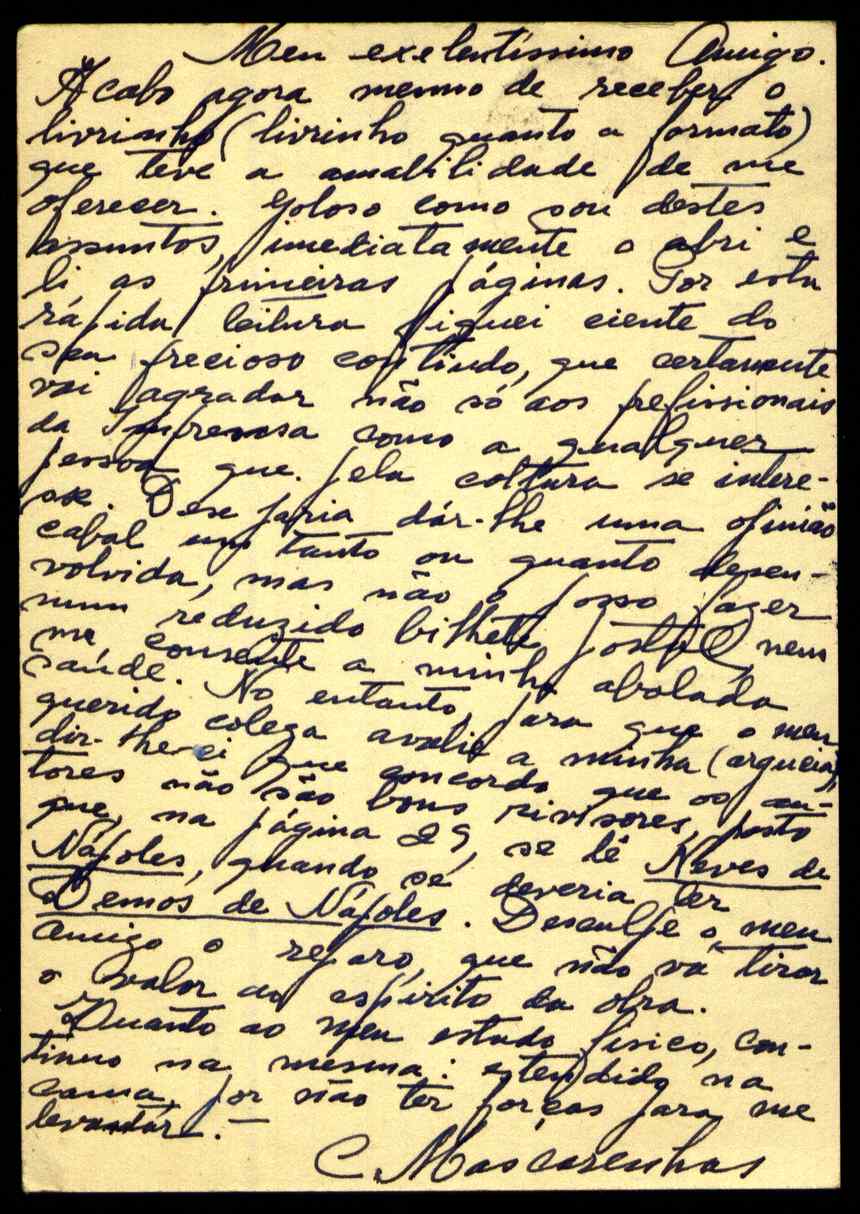 Meu exelentíssimo Amigo.
Acabo agora mesmo de receber o
livrinho (livrinho quanto a formato)
que teve a amabilidade de me
oferecer. Goloso como sou destes
assuntos, imediatamente o abri e
li as primeiras páginas. Por esta
rápida leitura fiquei ciente do
seu precioso contiudo, que certamente
vai agradar não só aos profissionais
da Imprensa como a qualquer
pessoa que pela cultura se intere-
sse. Desejaria dár-lhe uma opinião
cabal um tanto ou quanto desen-
volvida, mas não o posso fazer
num reduzido bilhete postal, nem
me consente a minha abalada
saúde. No entanto, para que o meu
querido colega avalie a minha (argueia),
dir-lhe-ei que concordo que os au-
tores não são bons rivisores, posto
que, na página 29, se lê Neves de
Nápoles, quando se deveria ler
Demos de Nápoles. Desculpe o meu
amigo o reparo, que não vá tirar
o valor ao espírito da obra.
Quanto ao meu estado físico, con-
tinuo na mesma: estendido na
cama, por não ter forças para me
levantár.-
C. Mascarenhas